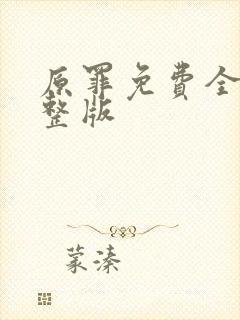 原罪免费全
整版
蒙溱